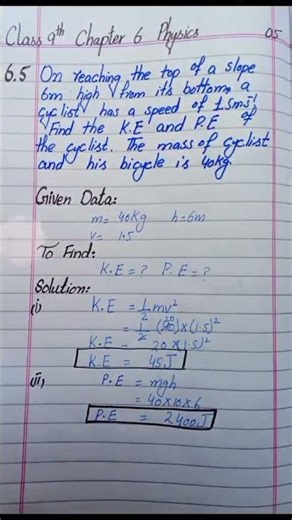 Class 9th Chapter 6 Physics 05
6.5 On reaching the top of a slope
6m high from its bottom, a
cyclist has a speed of 1.5ms-1
Find the K.E and P.E of
the cyclist. The mass of cyclist
and his bicycle is 40kg.
Given Data:
m= 40Kg h=6m
v= 1.5
To Find:
K.E=? P.E=?
Solution:
(i) K.E = 1/2 mv²
= 1/2 (40)×(1.5)²
K.E = 20×(1.5)²
K.E = 45J
(ii) P.E = mgh
= 40×10×6
P.E = 2400J